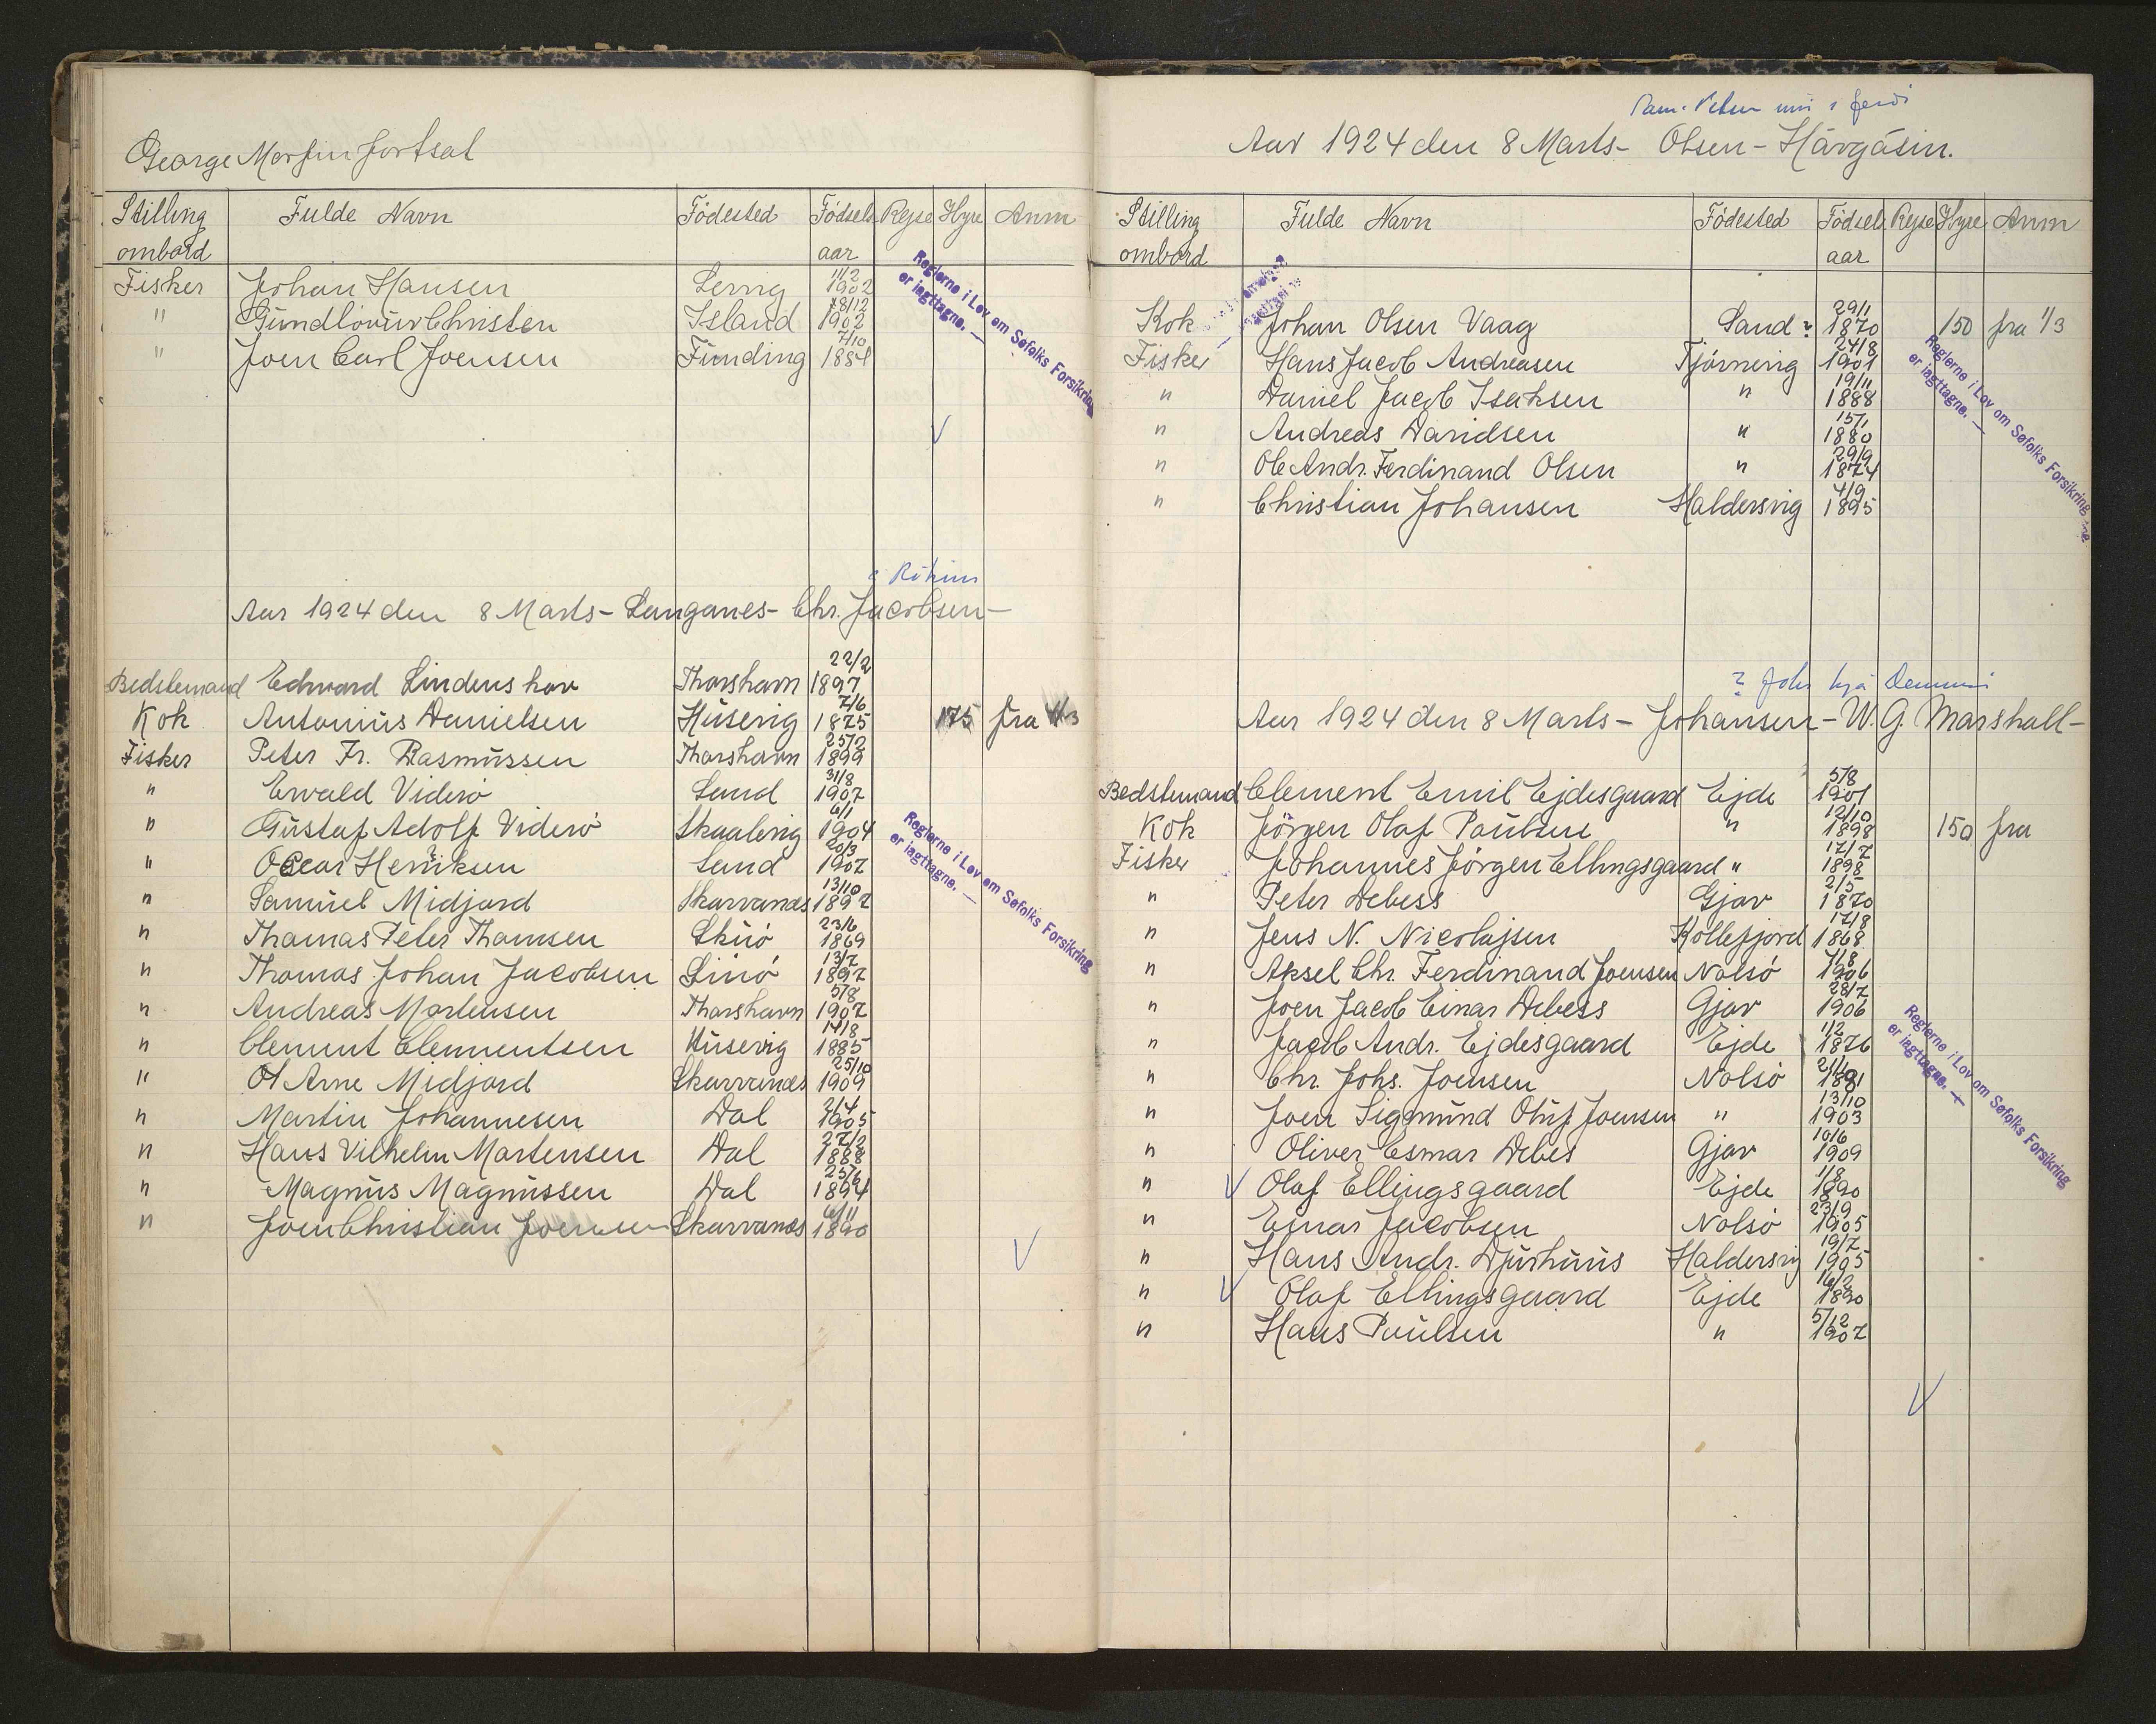 George Martin fortsat
Stilling ombord Fulde Navn Födested Födsels aar Rejse Hyre Anm
Fisker Johan Hansen Lervig 11/2 1902
" Christen Island 18/12 1902
" Joen Carl Joensen Funding 7/10 1884
Reglerne i Lov om Søfolks Forsikring
er iagttagne. —
Aar 1924 den 8 Marts - Langanes - Chr. Jacobsen -
Bedstemand Edward Lindenskov Thorshavn 22/2 1897
Kok Antonius Danielsen Húsevig 7/6 1875 175 fra 1/3
Fisker Peter Fr. Rasmússen Thorshavn 25/2 1899
" Ewald Viderö Sand 31/8 1907
" Gústaf Adolf Viderö Skaalevig 6/1 1904
" Oscar Henriksen Sand 20/3 1907
" Samúel Midjord Skarvanes 13/10 1897
" Thomas Peter Thomsen Skúö 23/6 1869
" Thomas Johan Jacobsen 13/7 1897
" Andreas Mortensen Thorshavn 5/8 1907
" Clement Clementsen Húsevig 14/8 1885
" Ol Arne Midjord Skarvanes 25/10 1909
" Martin Johannesen Dal 2/4 1905
" Hans Vilhelm Mortensen Dal 27/2 1888
" Magnús Magnússen Dal 25/6 1894
" Joen Christian Joensen Skarvanes 6/11 1890
Reglerne i Lov om Søfolks Forsikring
er iagttagne. —
Aar 1924 den 8 Marts - Olsen - Hávgásin.
Stilling ombord Fulde Navn Födested Födsels aar Rejse Hyre Anm
Kok Johan Olsen Vaag Sand ? 29/1 1870 150 fra 1/3
Fisker Hans Jacob Andreasen Tjörnevig 24/8 1901
" Daniel Jacob Isaksen " 19/11 1888
" Andreas Davidsen " 15/1 1880
" Ole Andr. Ferdinand Olsen " 29/9 1874
" Christian Johansen Haldersvig 4/9 1895
Reglerne i Lov om Søfolks Forsikring
er iagttagne. —
Aar 1924 den 8 Marts - Johansen - W. G. Marshall -
Bedstemand Clement Emil Ejdesgaard Ejde 5/8 1901
Kok Jörgen Olaf Poúlsen " 12/10 1898 150 fra
Fisker Johannes Jörgen Ellingsgaard " 17/7 1898
" Peter Debess Gjov 2/5 1870
" Jens N. Nicolajsen Kollefjord 17/8 1868
" Aksel Chr. Ferdinand Joensen Nolsö 7/8 1906
" Joen Jacob Einar Debess Gjov 28/7 1906
" Jacob Andr. Ejdesgaard Ejde 1/2 1876
" Chr. Johs. Joensen Nolsö 1881
" Joen Sigmúnd Olúf Joensen " 13/10 1903
" Oliver Esmar Debes Gjov 10/6 1909
" Olaf Ellingsgaard Ejde 1/8 1890
" Einar Jacobsen Nolsö 23/9 1905
" Hans Andr. Djúrhúús Haldersvig 19/7 1905
" Olaf Ellingsgaard Ejde 16/2 1890
" Hans Poúlsen " 5/12 1907
Reglerne i Lov om Søfolks Forsikring
er iagttagne. —